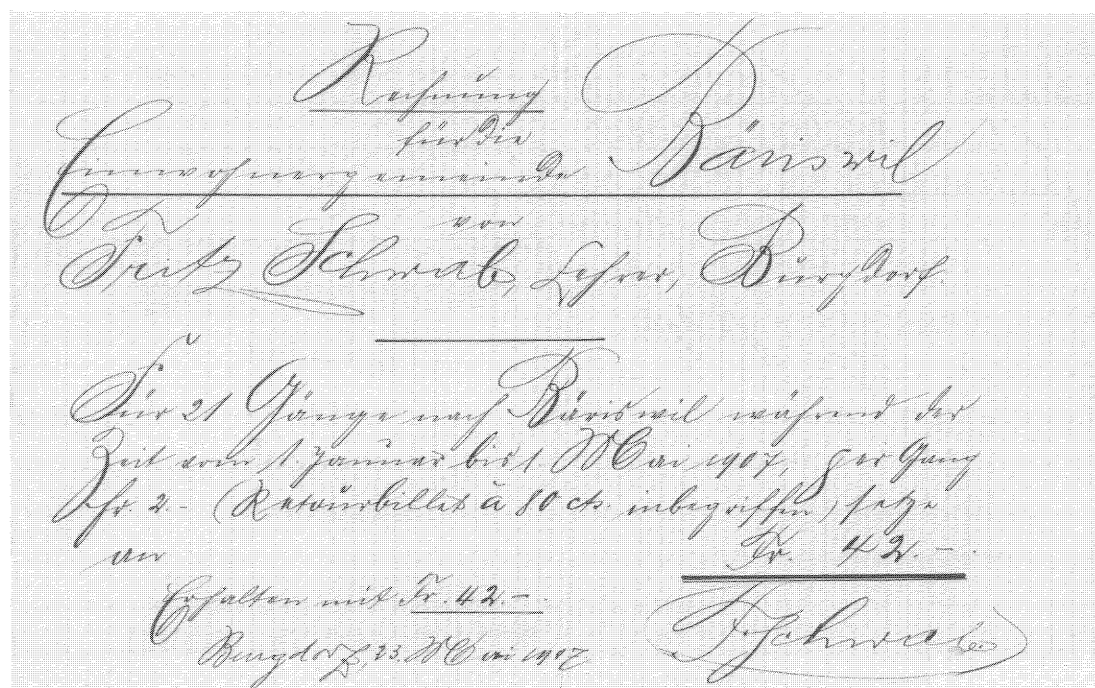 Rechnung
für die
Einwohnergemeinde Bäriswil
von
Fritz Schwab, Lehrer, Burgdorf.
Für 21 Gänge nach Bäriswil während der
Zeit vom 1. Januar bis 1. Mai 1907, per Gang
Fr. 2.- (Retourbillet à 80 cts. inbegriffen) setze
an Fr. 42.-.
Erhalten mit Fr. 42.-.
Burgdorf, 23. Mai 1907
F Schwab